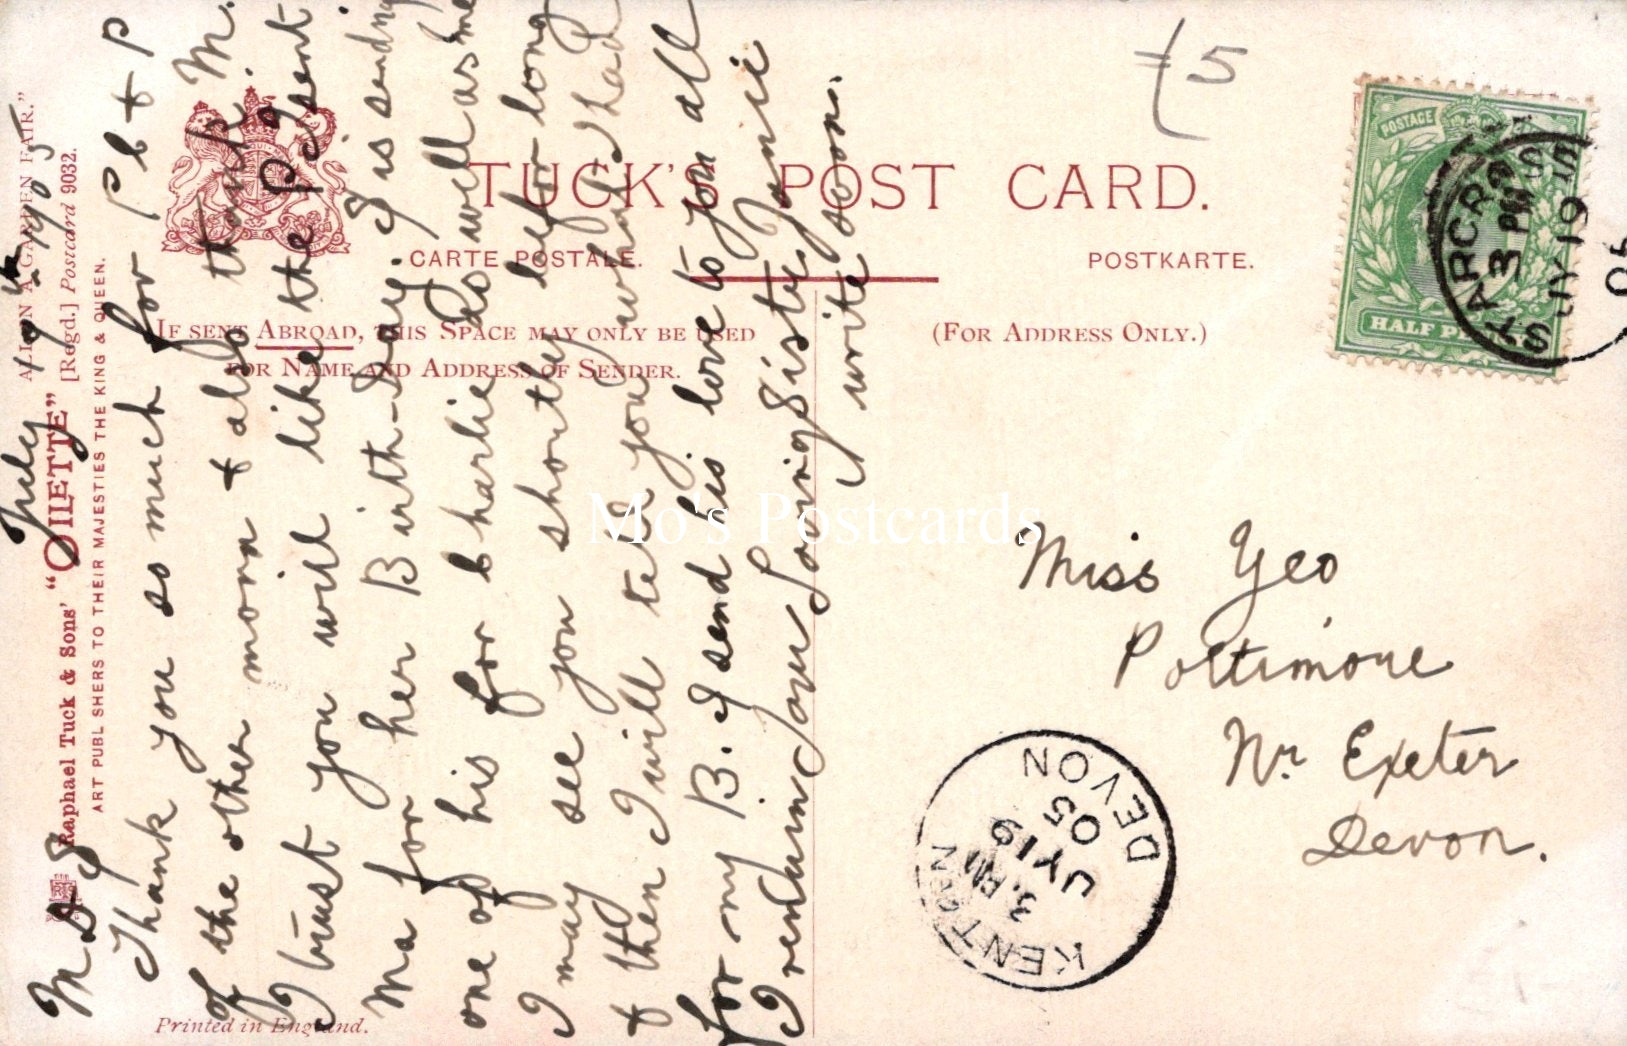 Raphael Tuck & Sons' "OILETTE" [Regd.] Postcard 9032.
ART PUBLISHERS TO THEIR MAJESTIES THE KING & QUEEN.
TUCK'S POST CARD.
CARTE POSTALE.
POSTKARTE.
IF SENT ABROAD, THIS SPACE MAY ONLY BE USED
FOR NAME AND ADDRESS OF SENDER.
(FOR ADDRESS ONLY.)
Printed in England.
July 19th 1905
M D S
Thank you so much for P C & P
of the other morn & also thank M.
I trust you will like the P C I sent
Ma for her Birth-Day. I is sending
one of his for Charlie as well as me
I may see you shortly before long
& then I will tell you what I had
for my B. I send his love to you all
I remain your Loving Sister Janie
write soon.
Miss Yeo
Poltimore
Nr Exeter
Devon.
£5
POSTAGE
HALF PENNY
STARCROSS
3 PM
JY 19
05
KENTON
3.PM
JY 19
05
DEVON
Mo's Postcards